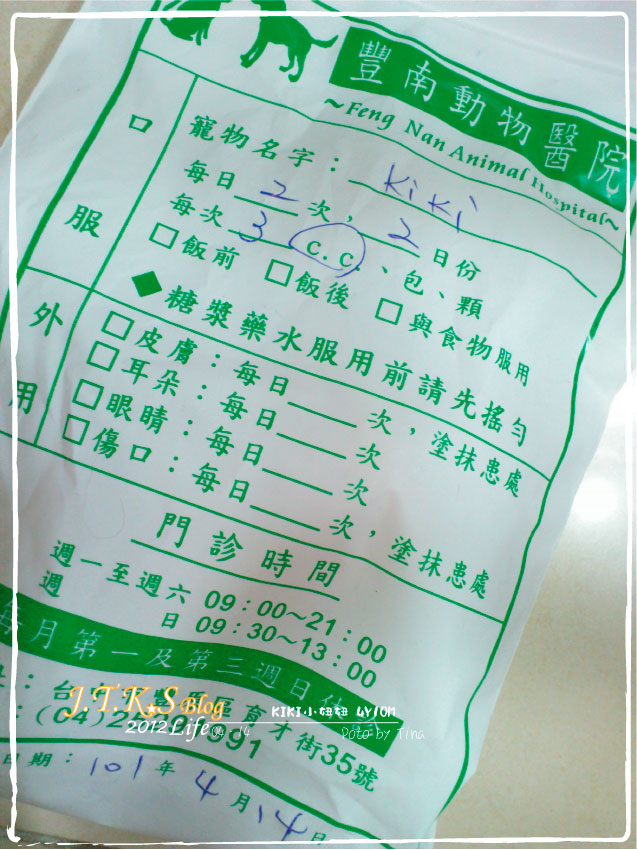 豐南動物醫院
~Feng Nan Animal Hospital~
口服
寵物名字：KiKi
每日2次，2日份
每次3 c.c.、包、顆
□飯前 □飯後 □與食物服用
◆糖漿藥水服用前請先搖勻
外用
□皮膚：每日____次，塗抹患處
□耳朵：每日____次
□眼睛：每日____次
□傷口：每日____次，塗抹患處
門診時間
週一至週六 09：00～21：00
週日 09：30～13：00
每月第一及第三週日休
區育才街35號
(04)2 991
日期：101年4月14日
J.T.K★S Blog
2012 Life
KIKI小妞妞 4Y10M
Poto by Tina